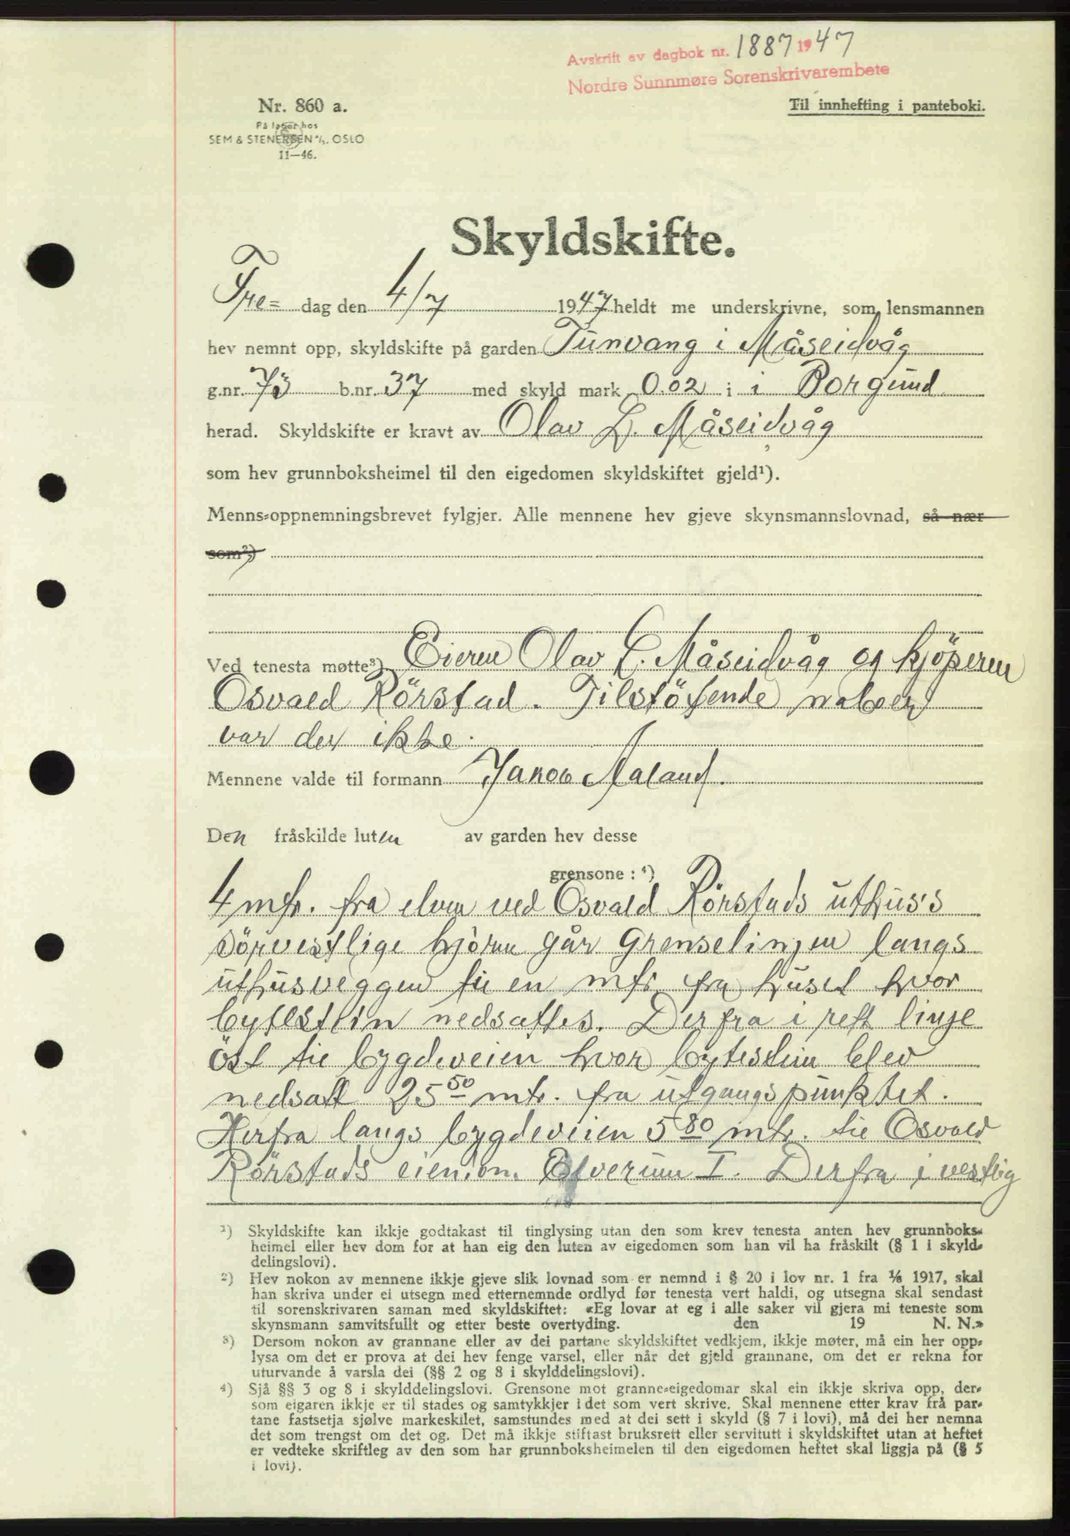 Avskrift av dagbok nr. 1887 1947
Nordre Sunnmøre Sorenskrivarembete
Nr. 860 a.
På lager hos
SEM & STENERSEN A/S. OSLO
11—46.
Til innhefting i panteboki.
Skyldskifte.
Fre= dag den 4/7 1947 heldt me underskrivne, som lensmannen
hev nemnt opp, skyldskifte på garden Tunvang i Måseidvåg
g.nr. 73 b.nr. 37 med skyld mark 0.02 i i Borgund
herad. Skyldskifte er kravt av Olav L. Måseidvåg
som hev grunnboksheimel til den eigedomen skyldskiftet gjeld¹).
Menns-oppnemningsbrevet fylgjer. Alle mennene hev gjeve skynsmannslovnad, så nær
som²)
Ved tenesta møtte³) Eieren Olav L. Måseidvåg og kjöperen
Osvald Rörstad. Tilstötende naboer
var der ikke.
Mennene valde til formann Jakob Aaland.
Den fråskilde luten av garden hev desse
grensone : ⁴)
4 mtr. fra elven ved Osvald Rörstads uthus's
sörvestlige hjörne går grenselinjen langs
uthusveggen til en mtr. fra huset hvor
bytestein nedsattes. Derfra i rett linje
öst til bygdeveien hvor bytestein blev
nedsatt 25 50 mtr. fra utgangspunktet.
Herfra langs bygdeveien 5 80 mtr. til Osvald
Rörstads eiendom. Elverum I. Derfra i vestlig
¹) Skyldskifte kan ikkje godtakast til tinglysing utan den som krev tenesta anten hev grunnboks-
heimel eller hev dom for at han eig den luten av eigedomen som han vil ha fråskilt (§ 1 i skyld-
delingslovi).
²) Hev nokon av mennene ikkje gjeve slik lovnad som er nemnd i § 20 i lov nr. 1 fra 1/6 1917, skal
han skriva under ei utsegn med etternemnde ordlyd før tenesta vert haldi, og utsegna skal sendast
til sorenskrivaren saman med skyldskiftet: «Eg lovar at eg i alle saker vil gjera mi teneste som
skynsmann samvitsfullt og etter beste overtyding. den 19 N. N.»
³) Dersom nokon av grannane eller av dei partane skyldskiftet vedkjem, ikkje møter, må ein her opp-
lysa om det er prova at dei hev fenge varsel, eller når det gjeld grannane, om det er rekna for
uturvande å varsla dei (§§ 2 og 8 i skylddelingslovi).
⁴) Sjå §§ 3 og 8 i skylddelingslovi. Grensone mot granne-eigedomar skal ein ikkje skriva opp, der-
som eigaren ikkje er til stades og samtykkjer i det som vert skrive. Skal mennene etter krav frå par-
tane fastsetja sjølve markeskilet, samstundes med at dei sett i skyld (§ 7 i lovi), må dei her nemna
det som trengst om det og. Det må ikkje stiftast bruksrett eller servitutt i skyldskiftet utan at heftet
er vedteke skriftleg av den som har grunnboksheimelen til den eigedomen heftet skal liggja på (§ 5
i lovi).